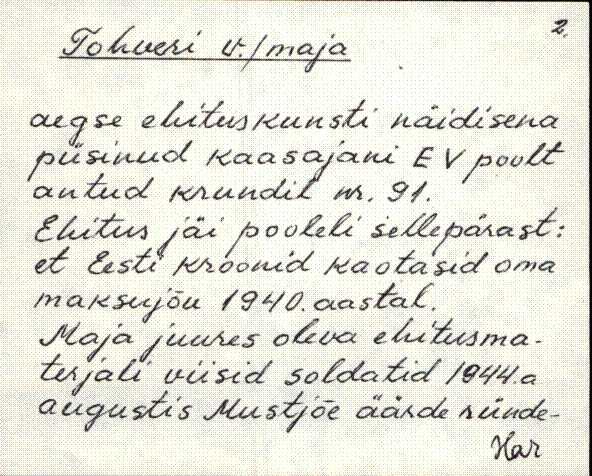 2.
Tohveri v./maja
aegse ehituskunsti näidisena
püsinud kaasajani EV poolt
antud krundil nr. 91.
Ehitus jäi pooleli sellepärast:
et Eesti kroonid kaotasid oma
maksujõu 1940. aastal.
Maja juures oleva ehitusma-
terjali viisid soldatid 1944.a
augustis Mustjõe äärde ründe-
Har